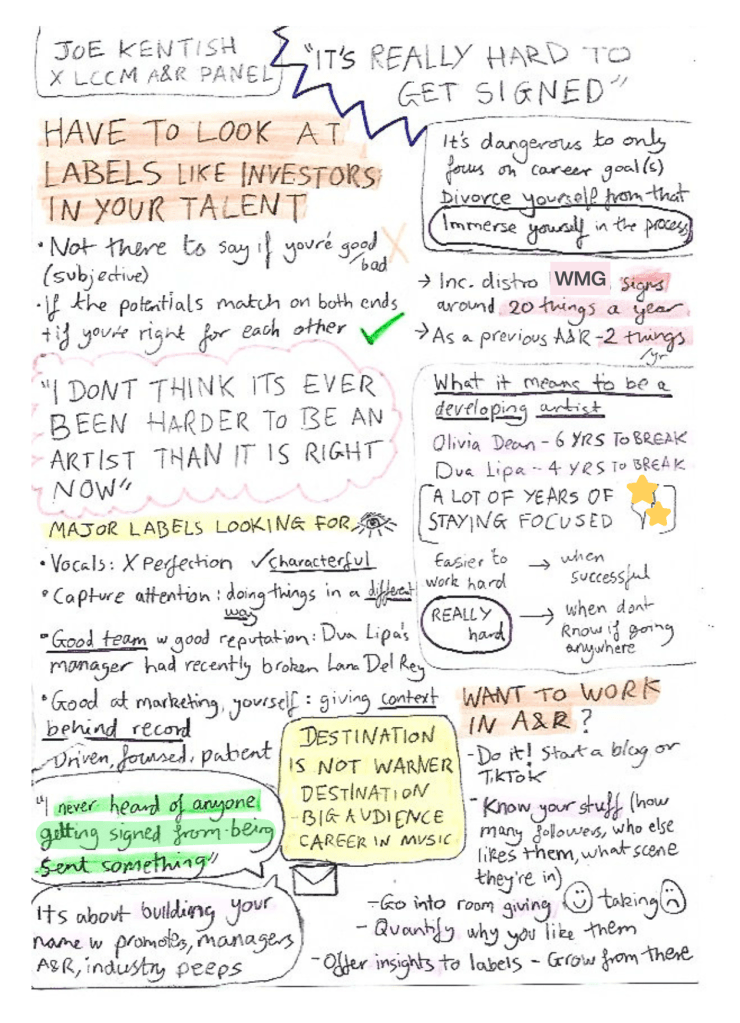 JOE KENTISH
X LCCM A&R PANEL
"IT'S REALLY HARD TO
GET SIGNED"
HAVE TO LOOK AT
LABELS LIKE INVESTORS
IN YOUR TALENT
• Not there to say if you're good
/bad
(subjective)
• If the potentials match on both ends
+ if you're right for each other ✓
It's dangerous to only
focus on career goal(s)
Divorce yourself from that
Immerse yourself in the process
→ Inc. distro WMG signs
around 20 things a year
→ As a previous A&R - 2 things
/yr
"I DONT THINK ITS EVER
BEEN HARDER TO BE AN
ARTIST THAN IT IS RIGHT
NOW"
What it means to be a
developing artist
Olivia Dean - 6 YRS TO BREAK
Dua Lipa - 4 YRS TO BREAK
[A LOT OF YEARS OF
STAYING FOCUSED]
Easier to
work hard
→ when
successful
REALLY
hard
→ when dont
know if going
anywhere
MAJOR LABELS LOOKING FOR
• Vocals: X Perfection ✓characterful
• Capture attention: doing things in a different
way
• Good team w good reputation: Dua Lipa's
manager had recently broken Lana Del Rey
• Good at marketing, yourself: giving context
behind record
Driven, focused, patient
"I never heard of anyone
getting signed from being
sent something"
Its about building your
name w promoters, managers
A&R, industry peeps
DESTINATION
IS NOT WARNER
DESTINATION
- BIG AUDIENCE
CAREER IN MUSIC
WANT TO WORK
IN A&R?
- Do it! Start a blog or
TikTok
- Know your stuff (how
many followers, who else
likes them, what scene
they're in)
- Go into room giving taking
- Quantify why you like them
- Offer insights to labels - Grow from there